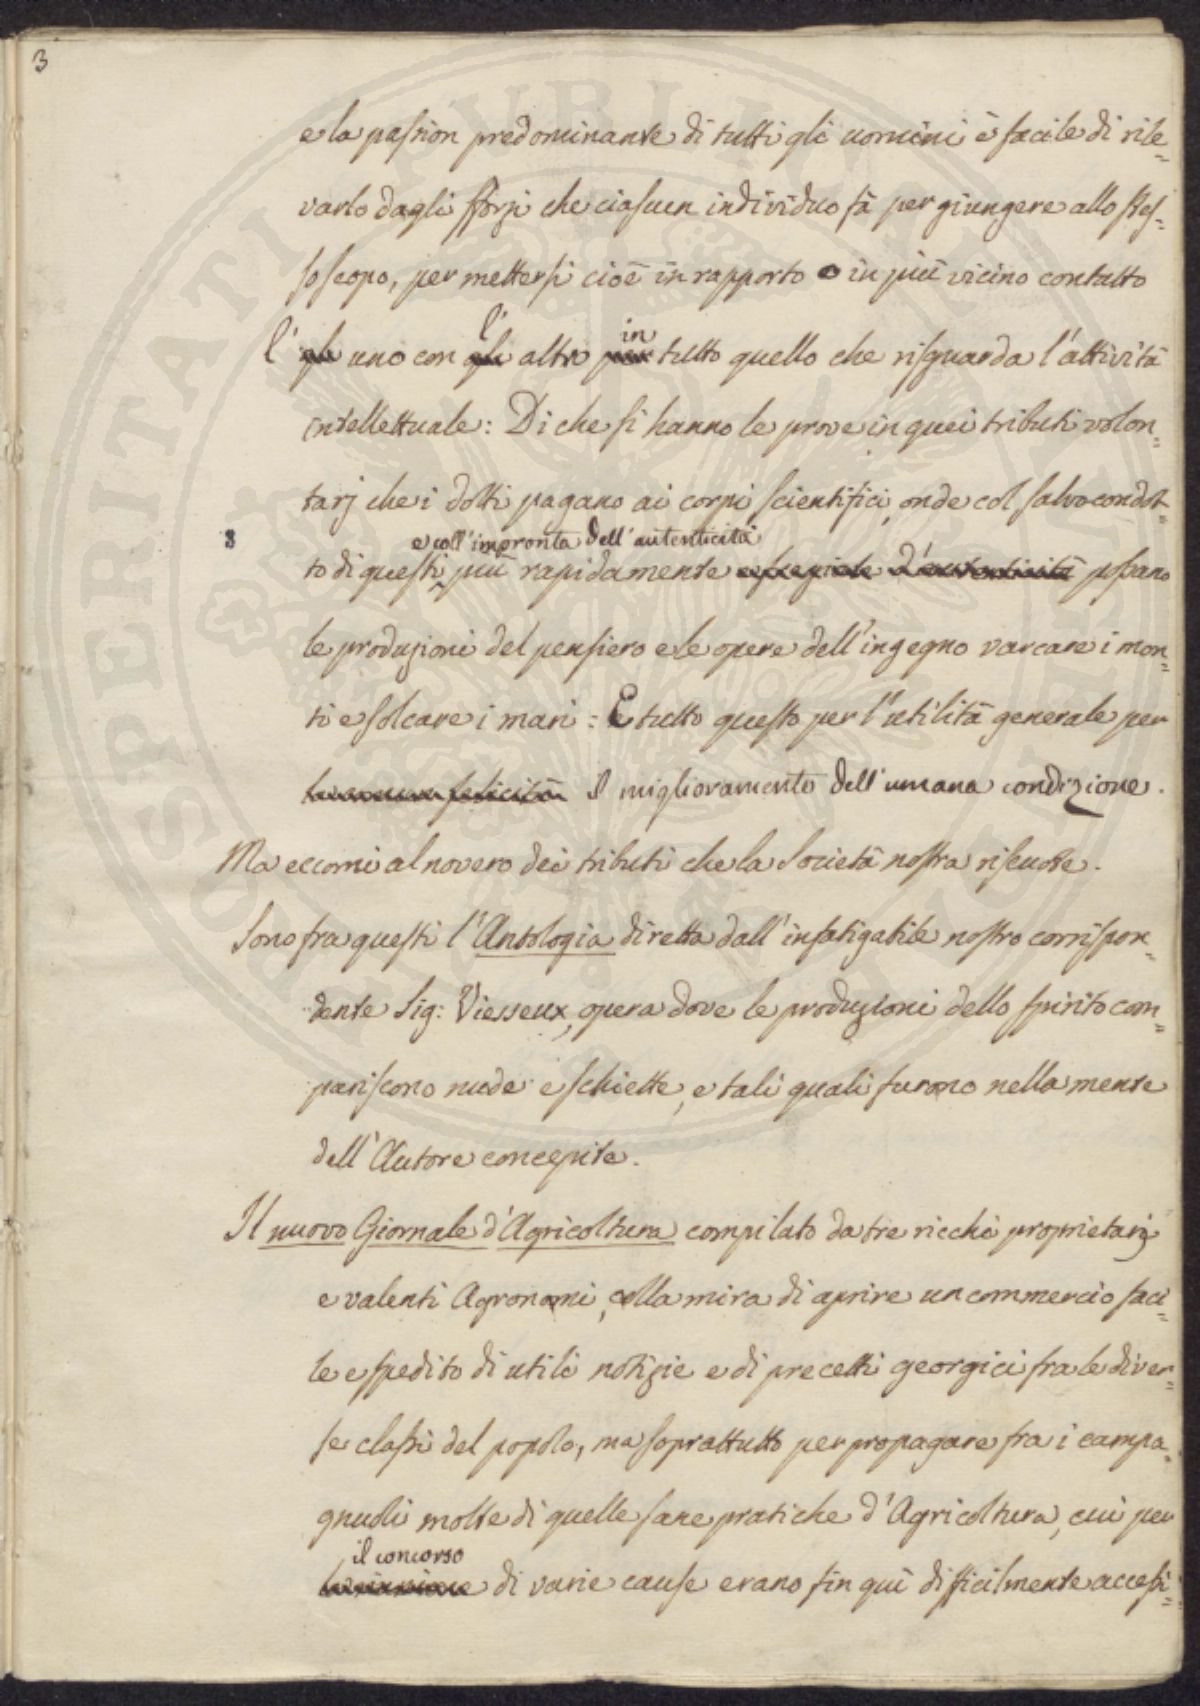 3
e la passion predominante di tutti gli uomini è facile di rile=
varlo dagli sforzi che ciascun individuo fà per giungere allo stes=
so scopo, per mettersi cioè in rapporto o in più vicino contatto
l' gli uno con gli l' altro per in tutto quello che risguarda l'attività
intellettuale: Di che si hanno le prove in quei tributi volon=
tarj che i dotti pagano ai corpi scientifici, onde col salvocondot=
e coll'impronta dell'autenticità
to di questi più rapidamente d'autenticità possano
le produzioni del pensiero e le opere dell'ingegno varcare i mon=
ti e solcare i mari: E tutto questo per l'utilità generale per
felicità il miglioramento dell'umana condizione.
Ma eccomi al novero dei tributi che la Società nostra riscuote.
Sono fra questi l'Antologia diretta dall'infatigabile nostro corrispon=
dente Sig: Viesseux, opera dove le produzioni dello spirito com=
pariscono nude e schiette, e tali quali furono nella mente
dell'Autore concepite.
Il nuovo Giornale d'Agricoltura compilato da tre ricchi proprietarj
e valenti Agronomi, colla mira di aprire un commercio faci=
le e spedito di utili notizie e di precetti georgici fra le diver=
se classi del popolo, ma soprattutto per propagare fra i campa=
gnuoli molte di quelle sane pratiche d'Agricoltura, cui per
il concorso
di varie cause erano fin quì difficilmente accessi=